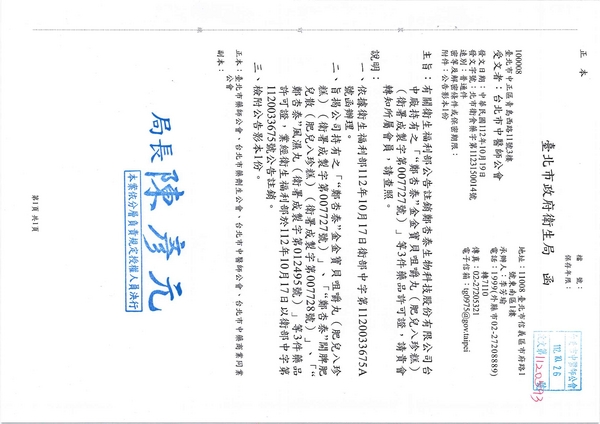 正本
檔　號：
保存年限：
臺北市政府衛生局　函
地址：11008 臺北市信義區市府路1
號東南區1樓
承辦人：李芳瑜
電話：1999(外縣市02-27208889)
轉7110
傳真：02-27205321
電子信箱：tg0975@gov.taipei
100008
臺北市中正區青島西路11號3樓
受文者：台北市中醫師公會
發文日期：中華民國112年10月19日
發文字號：北市衛食藥字第1123150014號
速別：普通件
密等及解密條件或保密期限：
附件：公告影本1份
主旨：有關衛生福利部公告註銷鄭杏泰生物科技股份有限公司台
中廠持有之「"鄭杏泰"金金寶貝咀嚼丸（肥兒八珍糕）
（衛署成製字第007727號）」等3件藥品許可證，請貴會
轉知所屬會員，請查照。
說明：
一、依據衛生福利部112年10月17日衛部中字第1120033675A
號函辦理。
二、旨揭公司持有之「"鄭杏泰"金金寶貝咀嚼丸（肥兒八珍
糕）（衛署成製字第007727號）」、「"鄭杏泰"開脾肥
兒散（肥兒八珍糕）（衛署成製字第007728號）」、「"
鄭杏泰"風濕丸（衛署成製字第012495號）」等3件藥品
許可證，業經衛生福利部於112年10月17日以衛部中字第
1120033675號公告註銷。
三、檢附公告影本1份。
正本：臺北市藥師公會、台北市藥劑生公會、台北市中醫師公會、台北市中藥商業同業
公會
副本：
局長 陳彥元
本案依分層負責規定授權人員決行
第1頁 共1頁